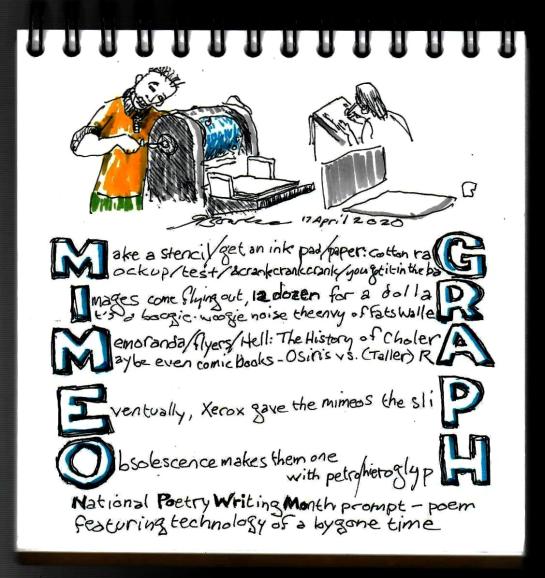 17 April 2020
Make a stencil/get an ink pad/paper: cotton raG
ockup/test/&crankcrankcrank/you got it in the ba
Images come flying out, 12 dozen for a dollaR
t's a boogie-woogie noise the envy of Fats Walle
Memoranda/flyers/Hell: The History of CholerA
aybe even comic Books - Osiris vs. (Taller) R
Eventually, Xerox gave the mimeos the sliP
Obsolescence makes them one
with petro/hieroglypH
National Poetry Writing Month prompt - poem
featuring technology of a bygone time